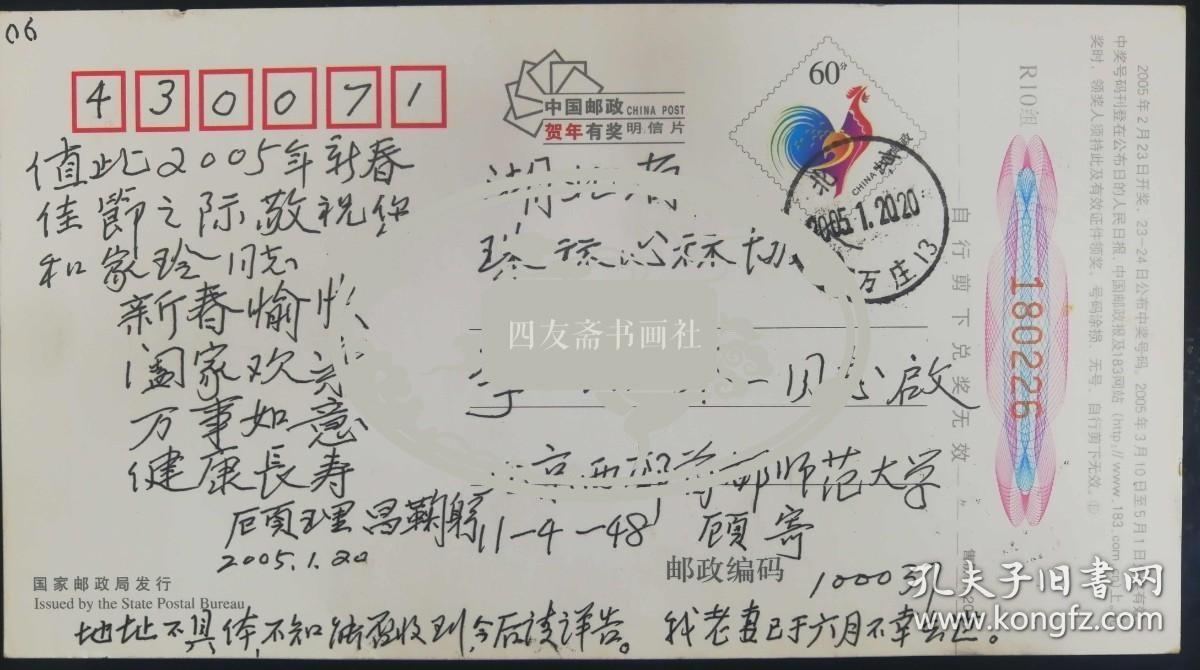 06
430071
中国邮政 CHINA POST
贺年有奖明信片
60分
CHINA 中国邮政
北
2005.1.2020
万庄13
值此2005年新春
佳節之际敬祝您
和家玲同志
新春愉快
阖家欢
万事如意
健康長寿
顾理昌鞠躬
2005.1.20
湖北
四友斋书画社
啟
京西
首都师范大学
11-4-48 顾寄
邮政编码
1000
国家邮政局发行
Issued by the State Postal Bureau
地址不具体,不知能否收到,今后请详告。我老妻已于六月不幸去世。
自行剪下兑奖无效
R10组
180226
2005年2月23日开奖,23-24日公布中奖号码。2005年3月10日至5月1日
中奖号码刊登在公布日的人民日报、中国邮政报及183网站(http://www.183.com.cn)上
奖时,领奖人须持此及有效证件领奖,号码涂损、无号、自行剪下无效。
孔夫子旧书网
www.kongfz.com